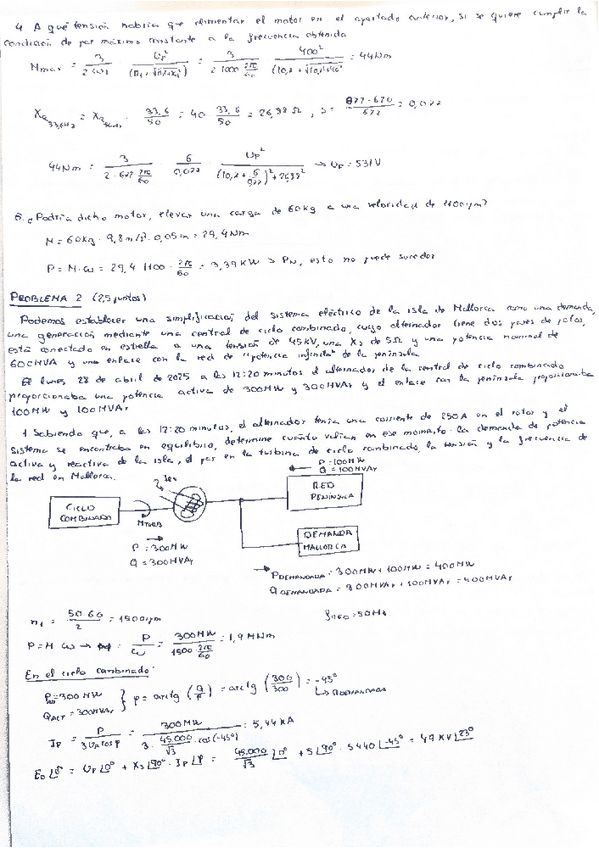 4 A qué tensión habría que alimentar el motor en el apartado anterior, si se quiere cumplir la
condición de par máximo constante a la frecuencia obtenida
Mmax = 3/(2 ω1) · Up²/(R1 + √(R1²+Xk²)) = 3/(2·1000 2π/60) · 400²/(10,2 + √(10,2²+40²)) = 44Nm
X 33,6Hz = X 50Hz · 33,6/50 = 40 33,6/50 = 26,88 Ω , s = (877-670)/677 = 0,077
44Nm = 3/(2·677 2π/60) · 6/0,077 · Up²/((10,2 + 6/0,077)² + 26,88²) → Up = 531V
5. ¿Podría dicho motor, elevar una carga de 60kg a una velocidad de 1100rpm?
M = 60kg · 9,8 m/s² · 0,05m = 29,4Nm
P = M·ω = 29,4 1100 · 2π/60 = 3,39 KW > PN, esto no puede suceder
PROBLEMA 2 (2,5 puntos)
Podemos establecer una simplificación del sistema eléctrico de la isla de Mallorca como una demanda,
una generación mediante una central de ciclo combinado, cuyo alternador tiene dos pares de polos,
está conectado en estrella a una tensión de 45KV, una Xs de 5Ω y una potencia nominal de
600MVA y una enlace con la red de "potencia infinita" de la península
El lunes 28 de abril de 2025 a las 12:20 minutos el alternador de la central de ciclo combinado
proporcionaba una potencia activa de 300MW y 300MVAr y el enlace con la península proporcionaba
100MW y 100MVAr
1 Sabiendo que, a las 12:20 minutos, el alternador tenía una corriente de 250A en el rotor y el
sistema se encontraba en equilibrio, determine cuánto valían en ese momento la demanda de potencia
activa y reactiva de la isla, el par en la turbina de ciclo combinado, la tensión y la frecuencia de
la red en Mallorca.
P=100MW
Q=100MVAr
RED
PENÍNSULA
CICLO
COMBINADO
MTURB
DEMANDA
MALLORCA
P=300MW
Q=300MVAr
PDEMANDADA = 300MW + 100MW = 400MW
QDEMANDADA = 300MVAr + 100MVAr = 400MVAr
n1 = 50·60/2 = 1500rpm
fRED = 50Hz
P = M ω → P/ω = 300MW/(1500 2π/60) = 1,9 MNm
En el ciclo combinado:
P = 300MW
QALT = 300MVAr } φ = arctg (Q/P) = arctg (300/300) = -45°
↳ QDEMANDADA
Ip = P/(3Up cosφ) = 300MW/(3 · 45.000/√3 · cos(-45°)) = 5,44 KA
E0 |δ° = Up |0° + Xs |90° · Ip |φ = 45.000/√3 |0° + 5 |90° · 5440 |-45° = 49 KV |23°